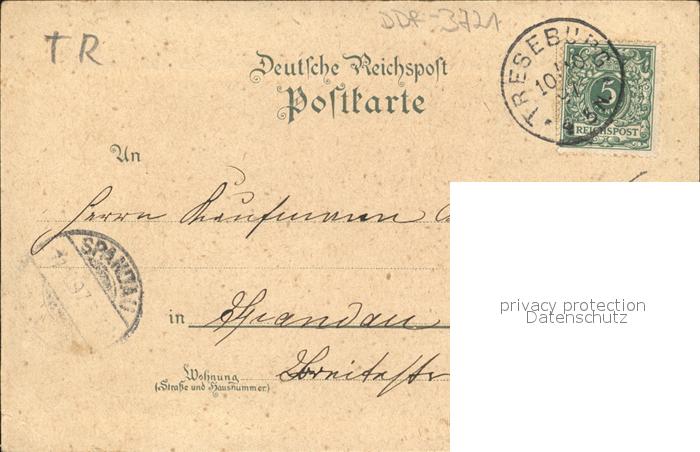 DDR-3721
TR
Deutsche Reichspost
Postkarte
TRESEBURG
5
REICHSPOST
An
Herrn Kaufmann
SPANDAU
in Spandau
Wohnung
(Straße und Hausnummer)
Breitestr
privacy protection
Datenschutz